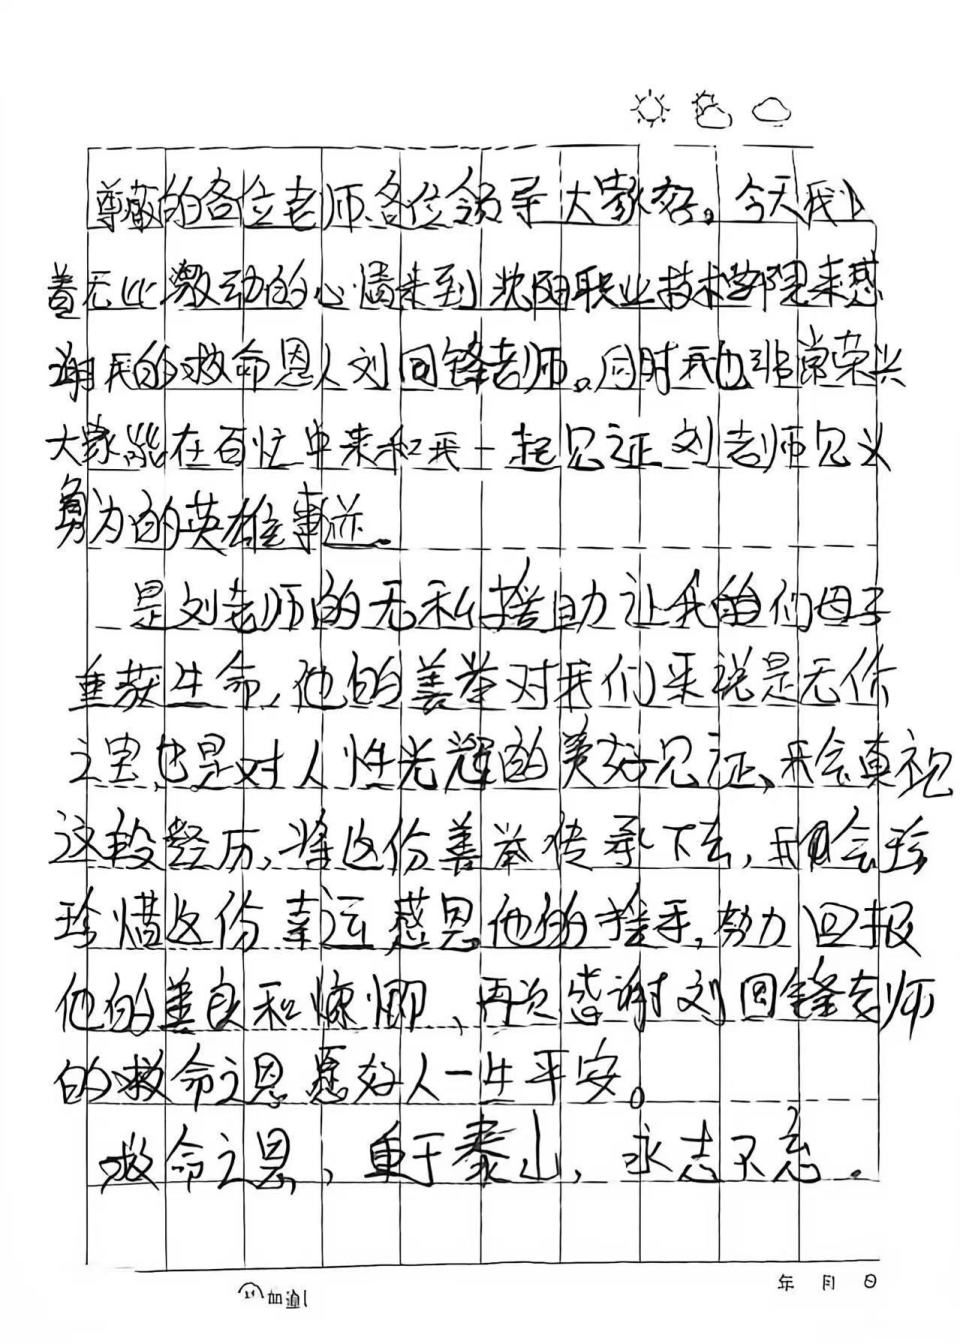 尊敬的各位老师、各位领导大家好。今天我
着无比激动的心情来到沈阳职业技术学院来感
谢我的救命恩人刘回锋老师。同时我也非常荣兴
大家能在百忙中来和我一起见证刘老师见义
勇为的英雄事迹。
是刘老师的无私援助让我们母子
重获生命,他的善举对我们来说是无价
之宝,也是对人性光辉的美好见证、我会直视
这段经历,将这份善举传承下去,我会珍
珍惜这份幸运感恩他的援手,努力回报
他的善良和慷慨、再次感谢刘回锋老师
的救命之恩愿好人一生平安。
救命之恩,重于泰山,永志不忘.
年 月 日
加油!